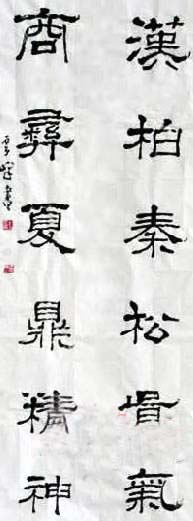 漢柏秦松骨氣
商彝夏鼎精神